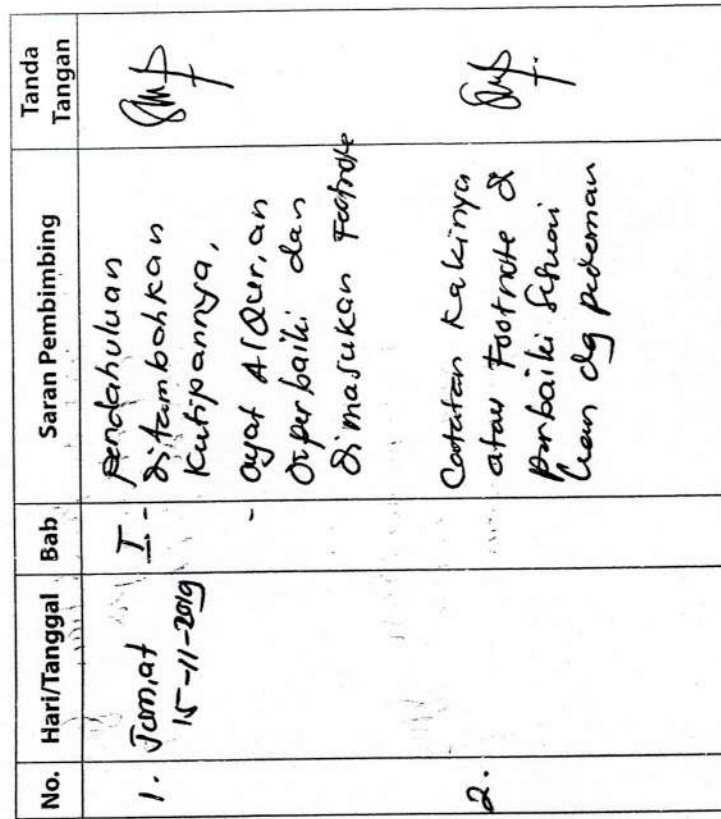 No. Hari/Tanggal Bab Saran Pembimbing Tanda Tangan
1. Jum,at I - pendahuluan
15-11-2019 ditambahkan
kutipannya,
- ayat AlQur,an
diperbaiki dan
dimasukan Footnote
2. Catatan kakinya
atau Footnote di
perbaiki sesuai
kan dg pedoman